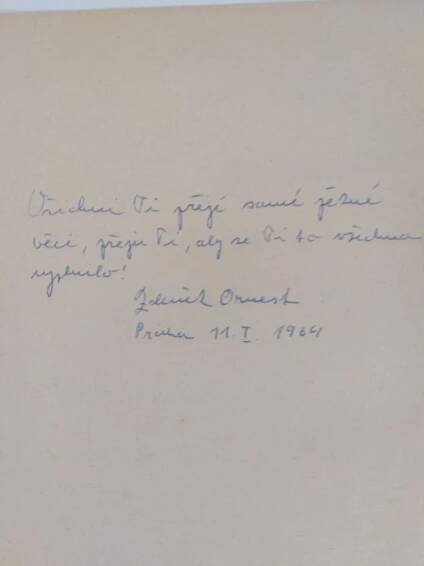 Všichni Ti přejí samé pěkné
věci, přeji Ti, aby se Ti to všechno
vyplnilo!
Zdeněk Ornest
Praha 11. I. 1964